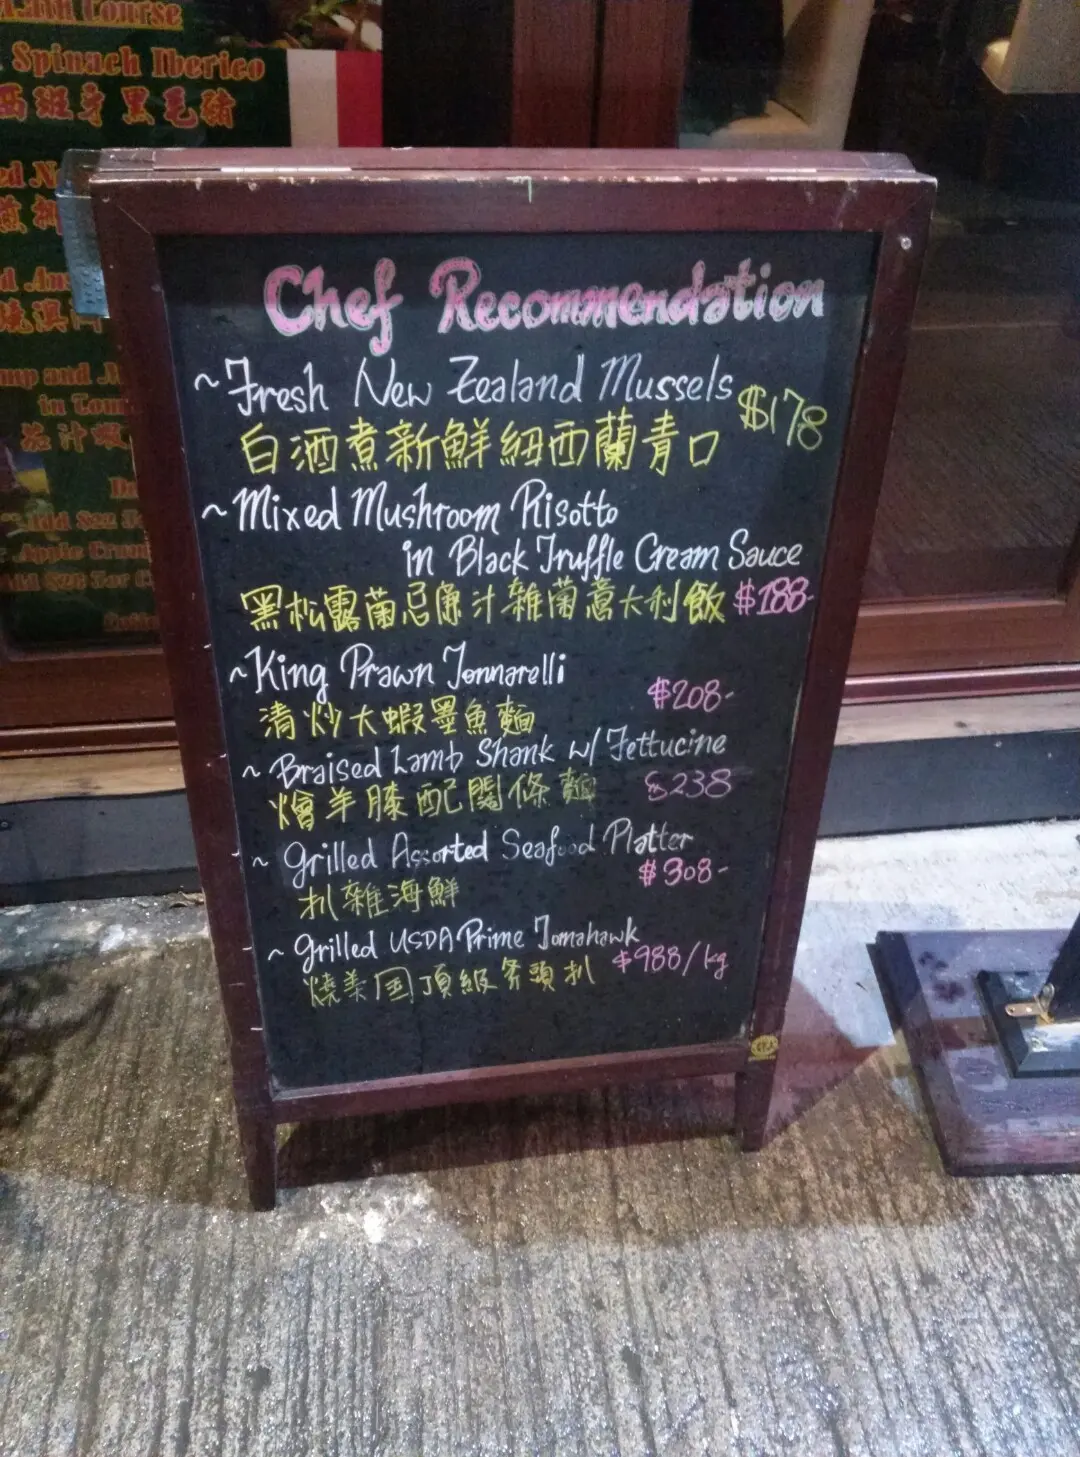 Main Course
Spinach Iberico
西班牙黑毛豬
Chef Recommendation
~Fresh New Zealand Mussels
$178
白酒煮新鮮紐西蘭青口
~Mixed Mushroom Risotto
in Black Truffle Cream Sauce
黑松露菌忌廉汁雜菌意大利飯 $188-
~King Prawn Tonnarelli
$208-
清炒大蝦墨魚麵
~ Braised Lamb Shank w/ Fettucine
燴羊膝配闊條麵 $238
~ Grilled Assorted Seafood Platter
$308-
扒雜海鮮
~ Grilled USDA Prime Tomahawk
$988/kg
燒美国頂級斧頭扒